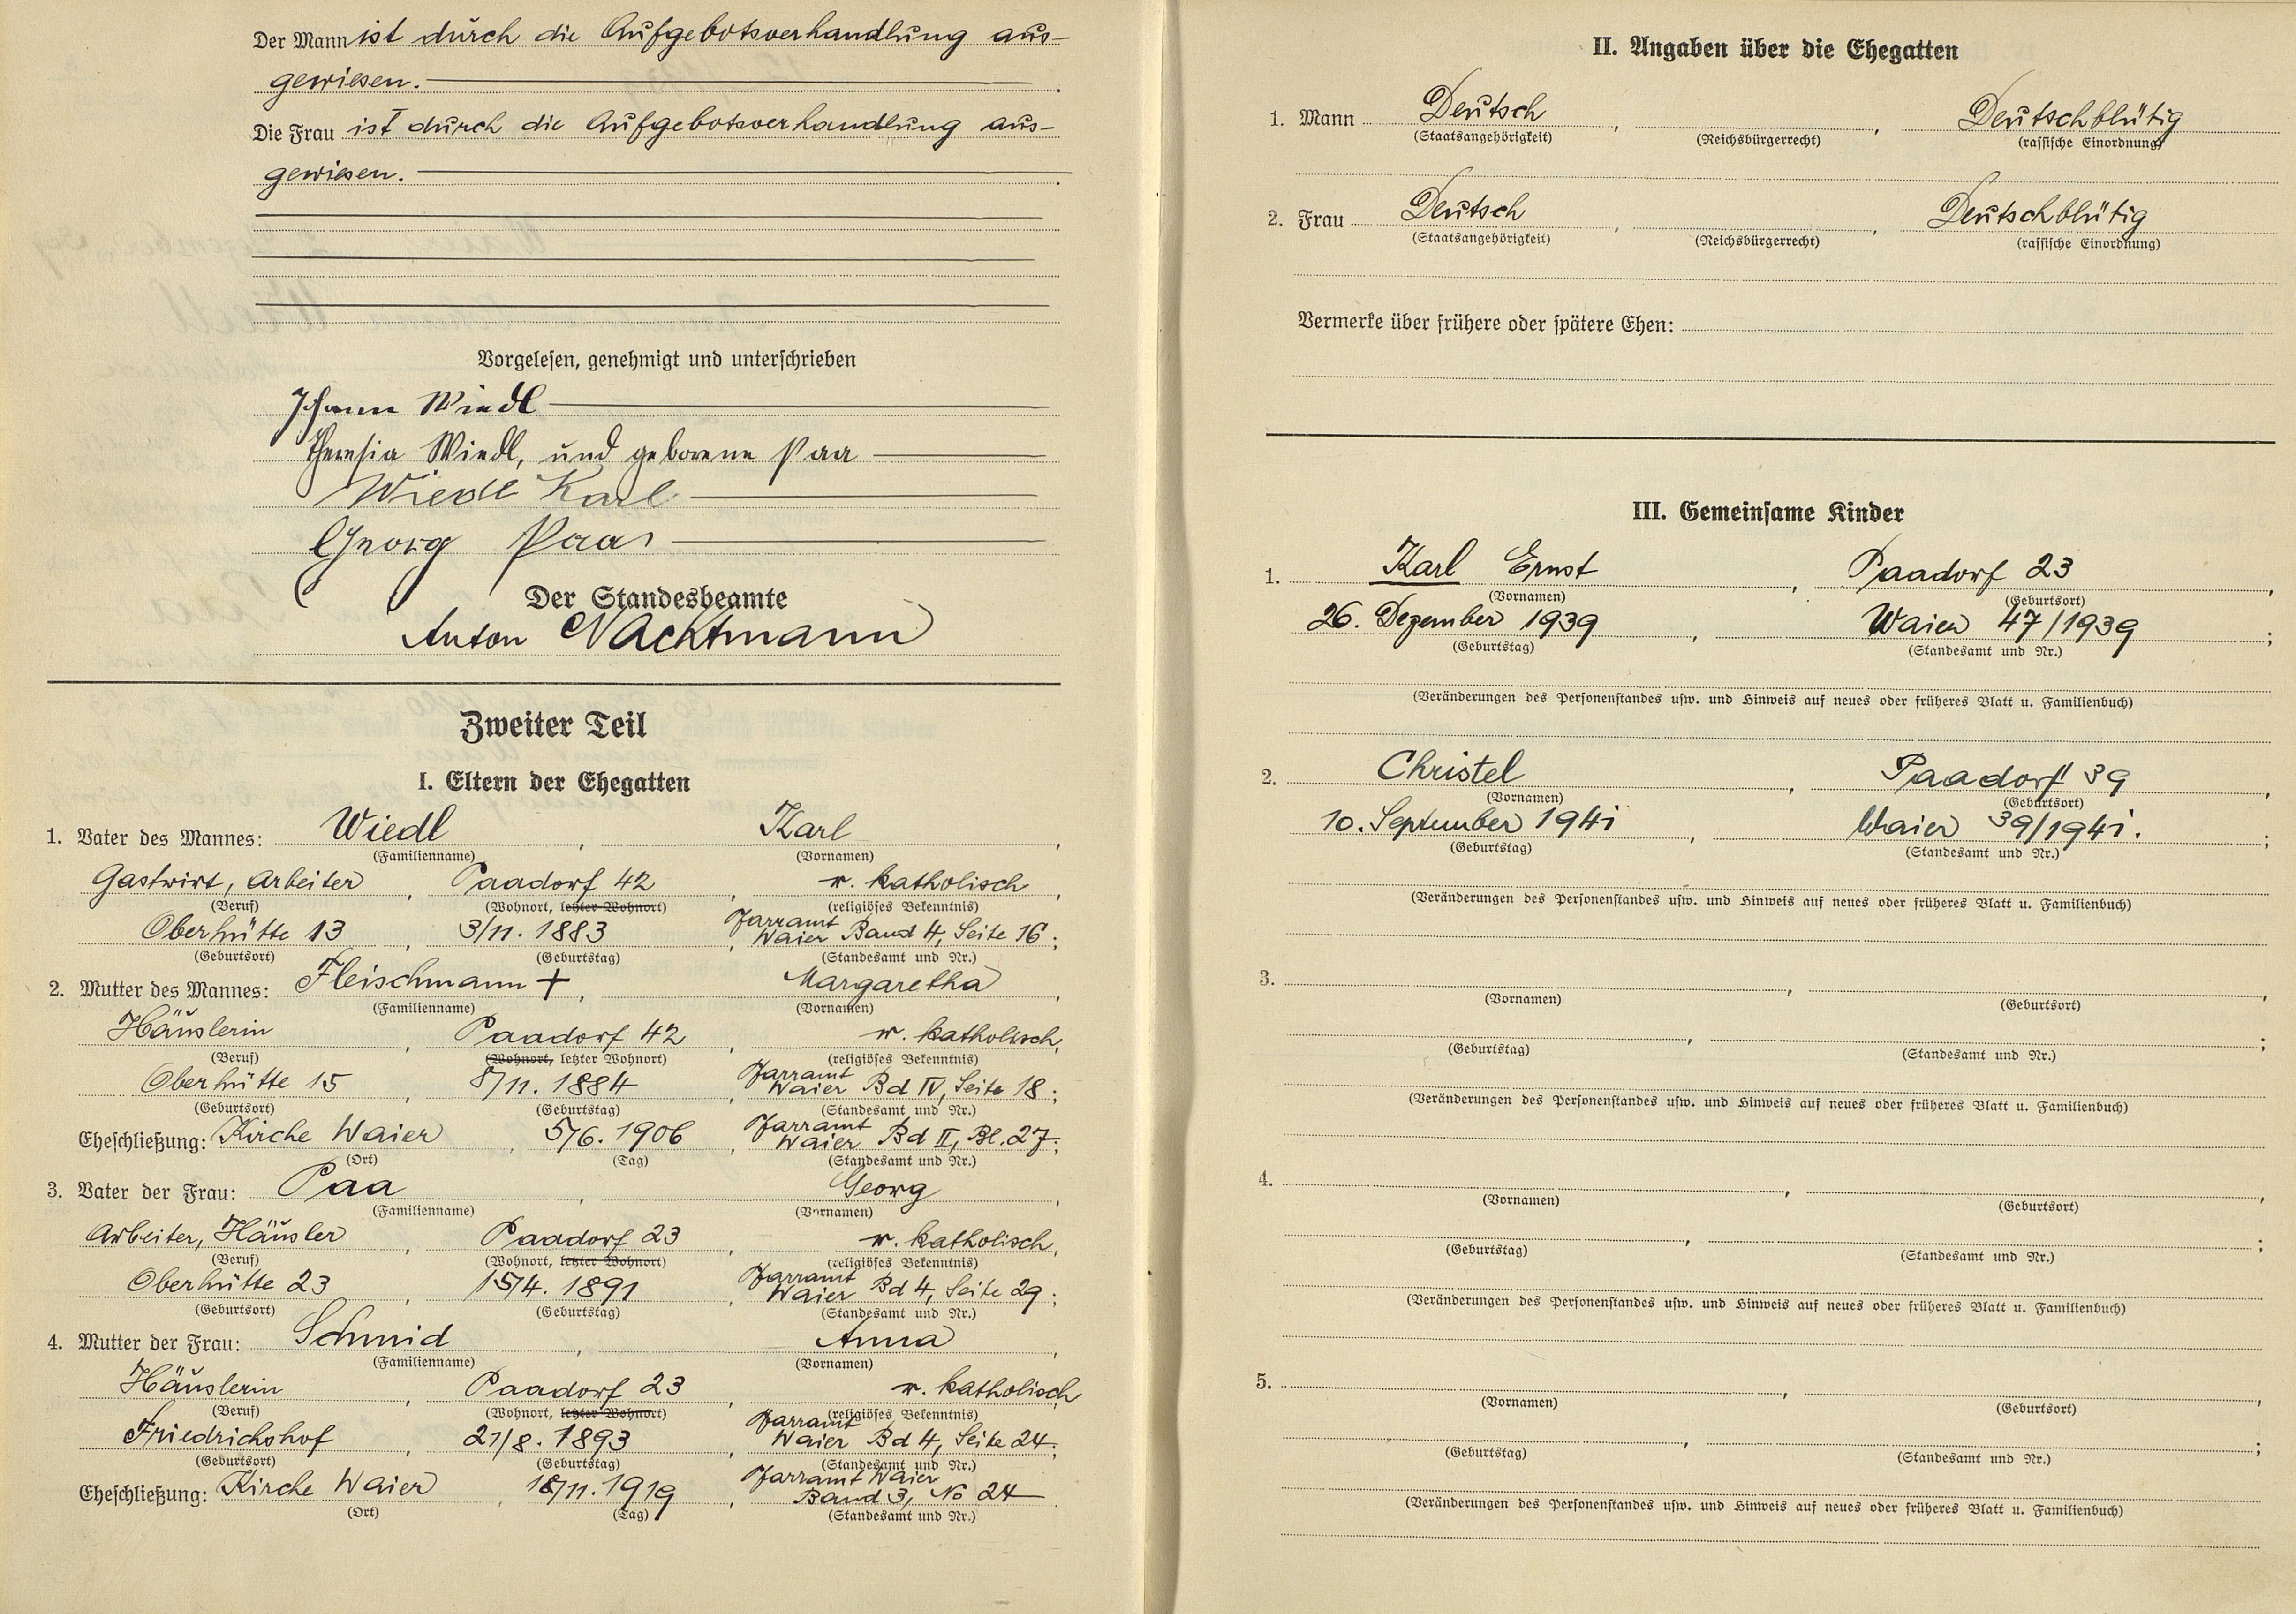 Der Mann ist durch die Aufgebotsverhandlung aus-
gewiesen.
Die Frau ist durch die Aufgebotsverhandlung aus-
gewiesen.
Vorgelesen, genehmigt und unterschrieben
Johann Wiedl
Theresia Wiedl, und geborene Paa
Wiedl Karl
Georg Paar
Der Standesbeamte
Anton Nachtmann
Zweiter Teil
I. Eltern der Ehegatten
1. Vater des Mannes: Wiedl, Karl,
(Familienname) (Vornamen)
Gastwirt, Arbeiter, Paadorf 42, r. katholisch,
(Beruf) (Wohnort, letzter Wohnort) (religiöses Bekenntnis)
Oberhütte 13, 3/11. 1883, Pfarramt Waier Band 4, Seite 16;
(Geburtsort) (Geburtstag) (Standesamt und Nr.)
2. Mutter des Mannes: Fleischmann +, Margaretha,
(Familienname) (Vornamen)
Häuslerin, Paadorf 42, r. katholisch,
(Beruf) (Wohnort, letzter Wohnort) (religiöses Bekenntnis)
Oberhütte 15, 8/11. 1884, Pfarramt Waier Bd IV, Seite 18;
(Geburtsort) (Geburtstag) (Standesamt und Nr.)
Eheschließung: Kirche Waier, 5/6. 1906, Pfarramt Waier Bd II, Bl. 27;
(Ort) (Tag) (Standesamt und Nr.)
3. Vater der Frau: Paa, Georg,
(Familienname) (Vornamen)
Arbeiter, Häusler, Paadorf 23, r. katholisch,
(Beruf) (Wohnort, letzter Wohnort) (religiöses Bekenntnis)
Oberhütte 23, 15/4. 1891, Pfarramt Waier Bd 4, Seite 29;
(Geburtsort) (Geburtstag) (Standesamt und Nr.)
4. Mutter der Frau: Schmid, Anna,
(Familienname) (Vornamen)
Häuslerin, Paadorf 23, r. katholisch
(Beruf) (Wohnort, letzter Wohnort) (religiöses Bekenntnis)
Friedrichshof, 21/8. 1893, Pfarramt Waier Bd 4, Seite 24;
(Geburtsort) (Geburtstag) (Standesamt und Nr.)
Eheschließung: Kirche Waier, 18/11. 1919, Pfarramt Waier Band 3, No 24
(Ort) (Tag) (Standesamt und Nr.)
II. Angaben über die Ehegatten
1. Mann Deutsch, , Deutschblütig
(Staatsangehörigkeit) (Reichsbürgerrecht) (rassische Einordnung)
2. Frau Deutsch, , Deutschblütig
(Staatsangehörigkeit) (Reichsbürgerrecht) (rassische Einordnung)
Vermerke über frühere oder spätere Ehen:
III. Gemeinsame Kinder
1. Karl Ernst, Paadorf 23,
(Vornamen) (Geburtsort)
26. Dezember 1939, Waier 47/1939;
(Geburtstag) (Standesamt und Nr.)
(Veränderungen des Personenstandes usw. und Hinweis auf neues oder früheres Blatt u. Familienbuch)
2. Christel, Paadorf 39,
(Vornamen) (Geburtsort)
10. September 1941, Waier 39/1941.;
(Geburtstag) (Standesamt und Nr.)
(Veränderungen des Personenstandes usw. und Hinweis auf neues oder früheres Blatt u. Familienbuch)
3. , ,
(Vornamen) (Geburtsort)
, ;
(Geburtstag) (Standesamt und Nr.)
(Veränderungen des Personenstandes usw. und Hinweis auf neues oder früheres Blatt u. Familienbuch)
4. , ,
(Vornamen) (Geburtsort)
, ;
(Geburtstag) (Standesamt und Nr.)
(Veränderungen des Personenstandes usw. und Hinweis auf neues oder früheres Blatt u. Familienbuch)
5. , ,
(Vornamen) (Geburtsort)
, ;
(Geburtstag) (Standesamt und Nr.)
(Veränderungen des Personenstandes usw. und Hinweis auf neues oder früheres Blatt u. Familienbuch)